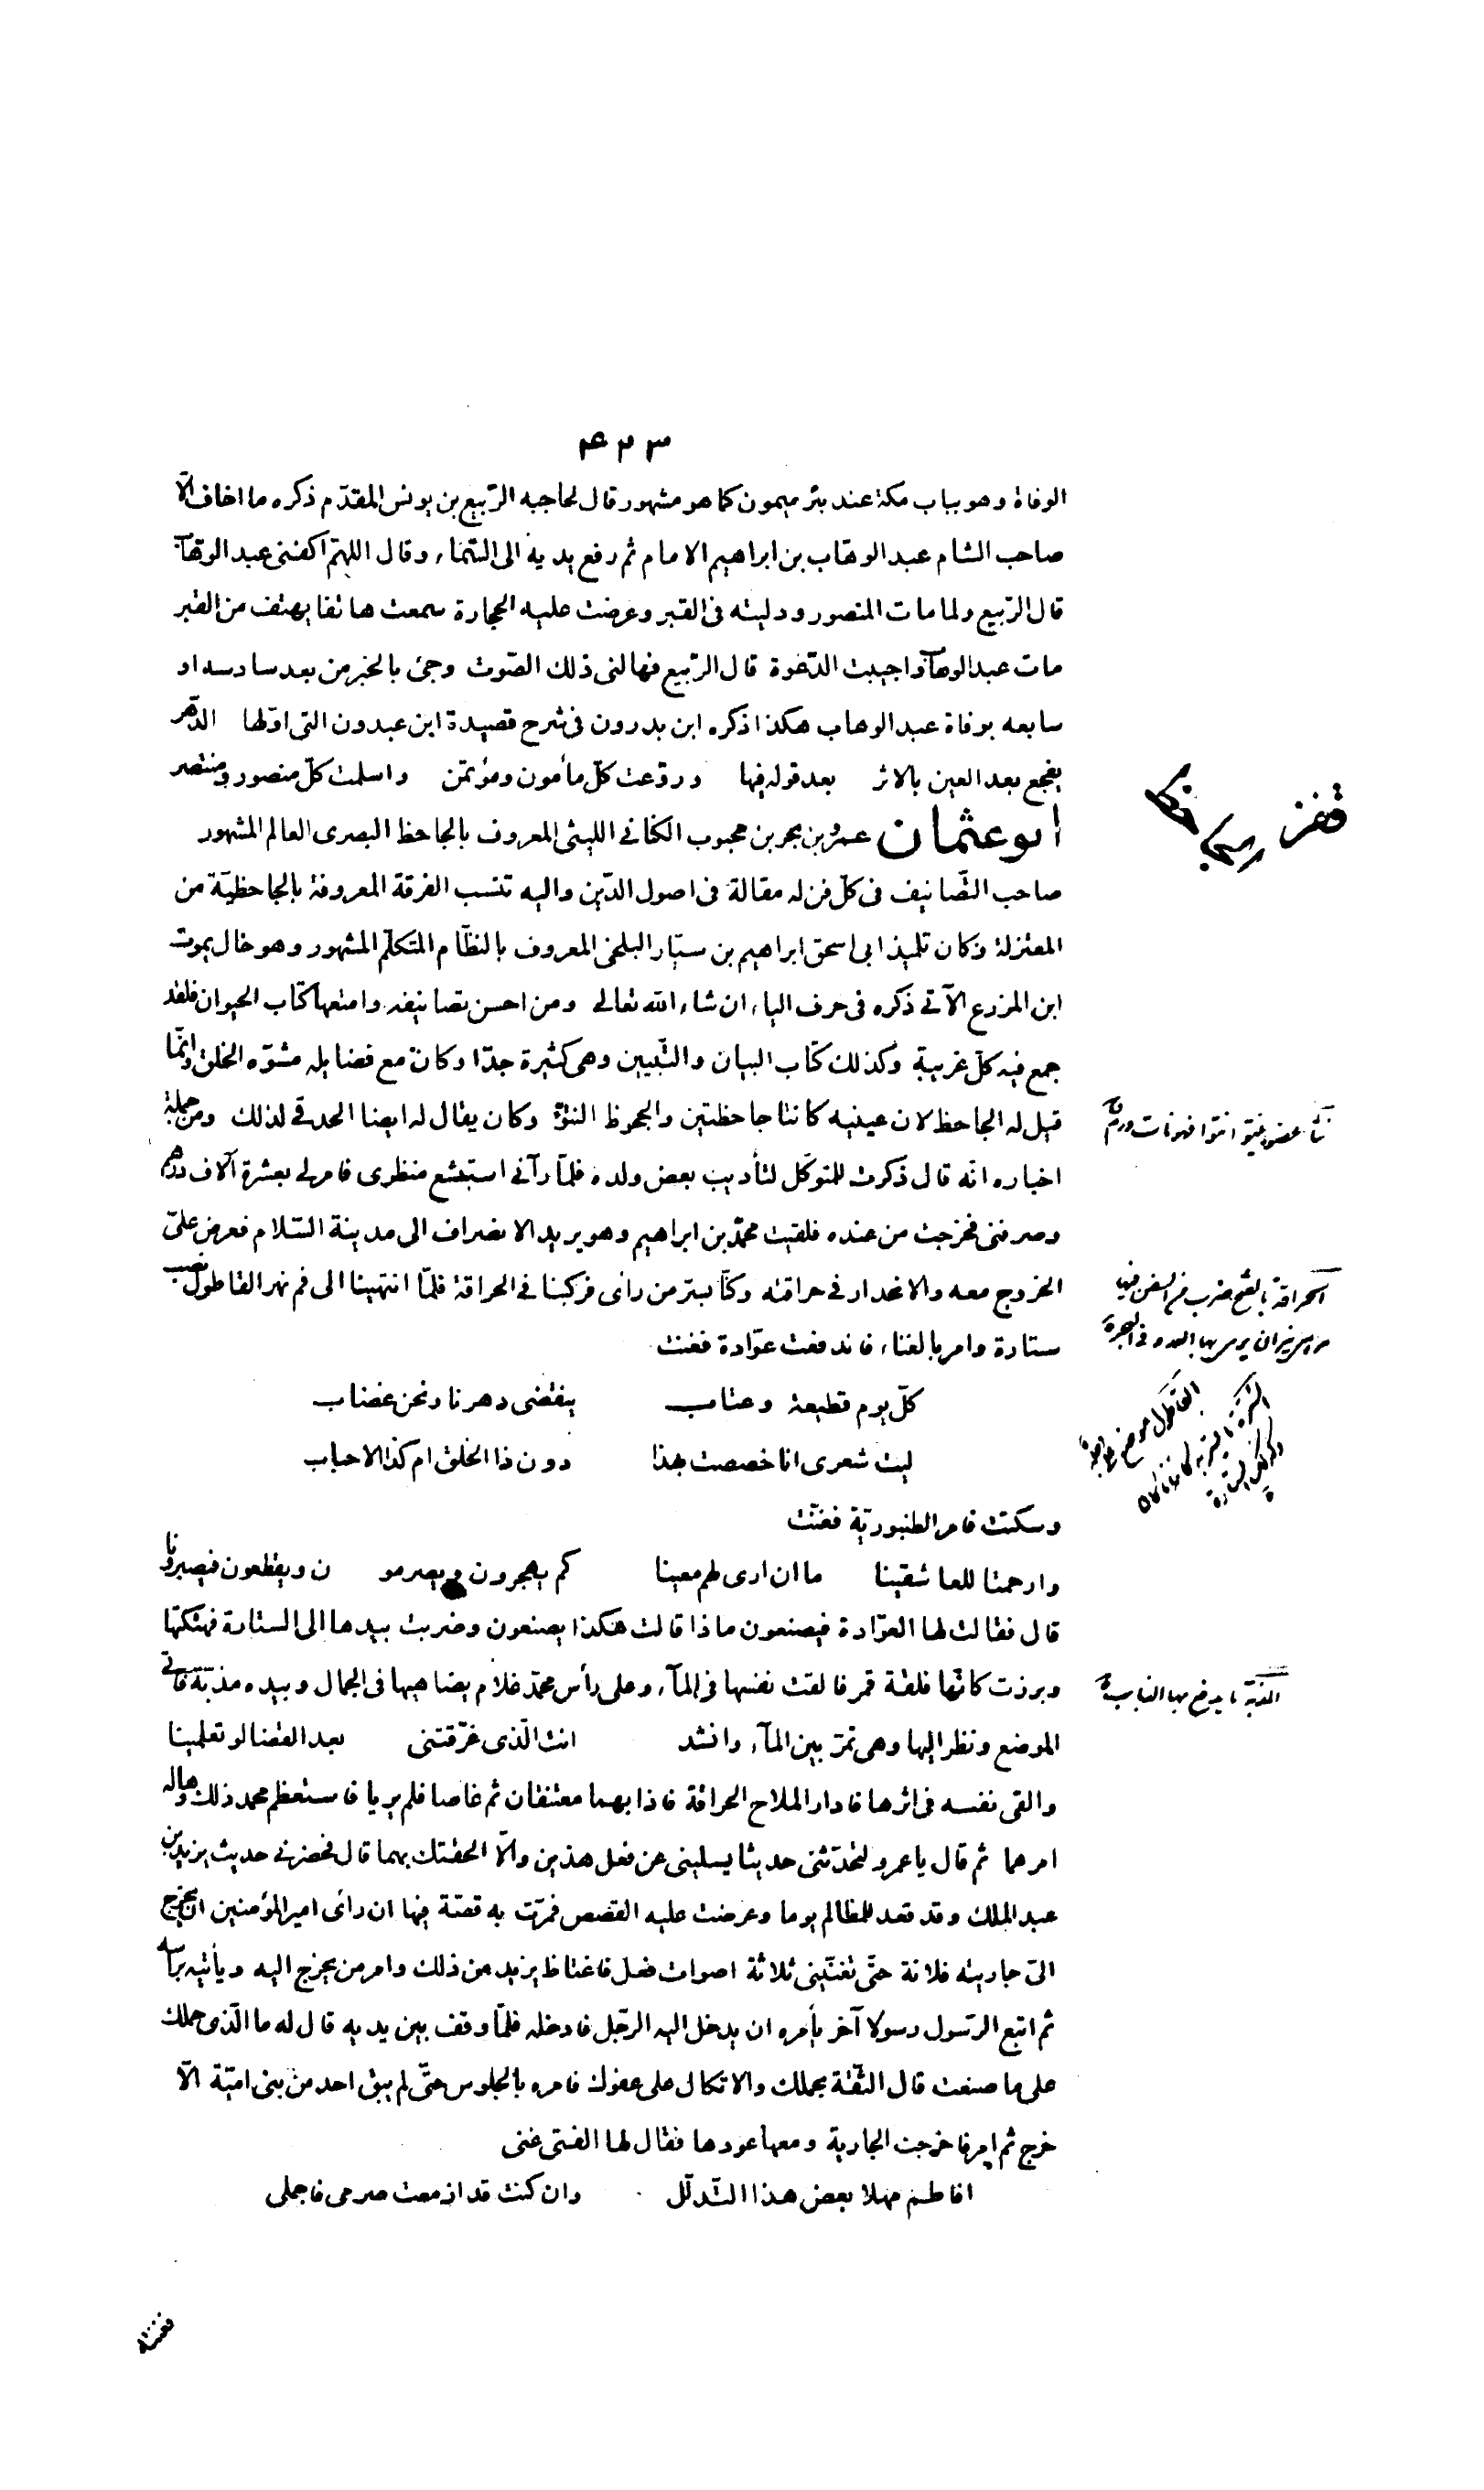 ۴۲۳
الوفاة وهو بباب مكة عند بئر ميمون كما هو مشهور قال لحاجبه الرّبيع بن يونس المقدّم ذكره ما اخاف الّا
صاحب الشام عبد الوهّاب بن ابراهيم الامام ثم رفع يديه الى السّماء وقال اللهمّ اكفنى عبد الوهّاب
قال الرّبيع ولما مات المنصور ودليته فى القبر وعرضت عليه الحجارة سمعت هاتفا يهتف من القبر
مات عبد الوهاب واجيبت الدّعوة قال الرّبيع فهالنى ذلك الصّوت وجئ بالخبر من بعد سادسه او
سابعه بوفاة عبد الوهاب هكذا ذكره ابن بدرون فى شرح قصيدة ابن عبدون التى اوّلها الدّهر
يفجع بعد العين بالاثر بعد قوله فيها وروّعت كلّ مأمون ومؤتمن واسلمت كلّ منصور ومنتصر
ابو عثمان عمرو بن بحر بن محبوب الكنانى الليثى المعروف بالجاحظ البصرى العالم المشهور
صاحب التّصانيف فى كلّ فن له مقالة فى اصول الدّين واليه تنسب الفرقة المعروفة بالجاحظيّة من
المعتزلة وكان تلميذ ابى اسحق ابراهيم بن سيّار البلخى المعروف بالنظّام المتكلّم المشهور وهو خال يموت
ابن المزرع الآتى ذكره فى حرف الياء ان شاء الله تعالى ومن احسن تصانيفه وامتعها كتاب الحيوان فلقد
جمع فيه كلّ غريبة وكذلك كتاب البيان والتّبيين وهى كثيرة جدّا وكان مع فضايله مشوّه الخلق وانّما
قيل له الجاحظ لان عينيه كانتا جاحظتين والجحوظ النتوّ وكان يقال له ايضا الحدقى لذلك ومن جملة
اخباره انّه قال ذكرت للمتوكّل لتأديب بعض ولده فلمّا رآنى استبشع منظرى فامر لى بعشرة آلاف درهم
وصرفنى فخرجت من عنده فلقيت محمّد بن ابراهيم وهو يريد الانصراف الى مدينة السّلام فعرض علىّ
الخروج معه والانحدار فى حراقته وكنّا بسرّ من رأى فركبنا فى الحراقة فلمّا انتهينا الى فم نهر القاطول نصب
ستارة وامر بالغناء فاندفعت عوّادة فغنت
كلّ يوم قطيعة وعتاب ينقضى دهرنا ونحن غضاب
ليت شعرى انا خصصت بهذا دون ذا الخلق ام كذا الاحباب
وسكتت فامر الطنبوريّة فغنّت
وارحمتا للعاشقينا ما ان ارى لهم معينا كم يهجرون ويصرمون ويقطعون فيصبرونا
قال فقالت لها العوّادة فيصنعون ماذا قالت هكذا يصنعون وضربت بيدها الى الستارة فهتكتها
وبرزت كانّها فلقة قمر فالقت نفسها فى المآء وعلى رأس محمّد غلام يضاهيها فى الجمال وبيده مذبّة فاتى
الموضع ونظر اليها وهى تمرّ بين المآء وانشد انت الّذى غرّقتنى بعد القضا لو تعلمينا
والقى نفسه فى اثرها فادار الملاح الحراقة فاذا بهما معتنقان ثم غاصا فلم يريا فاستعظم محمد ذلك وهاله
امرهما ثم قال يا عمرو لتحدّثنى حديثا يسلينى عن فعل هذين والّا الحقتك بهما قال فحضرنى حديث يزيد بن
عبد الملك وقد قعد للمظالم يوما وعرضت عليه القصص فمرّت به قصّة فيها ان رأى امير المؤمنين ان يخرج
الىّ جاريته فلانة حتّى تغنّينى ثلاثة اصوات فعل فاغتاظ يزيد من ذلك وامر من يخرج اليه ويأتيه برأسه
ثم اتبع الرّسول رسولا آخر يأمره ان يدخل اليه الرّجل فادخله فلمّا وقف بين يديه قال له ما الّذى حملك
على ما صنعت قال الثّقة بحلمك والاتكال على عفوك فامره بالجلوس حتّى لم يبق احد من بنى اميّة الّا
خرج ثم امر فاخرجت الجارية ومعها عودها فقال لها الفتى غنى
افاطم مهلا بعض هذا التّدلّل وان كنت قد ازمعت صرمى فاجملى
الحراقة بالفتح ضرب من السفن فيها
مرامى نيران يرمى بها العدو فى البحر
القاطول موضع على دجلة
المذبة ما يدفع بها الذباب
فغنته